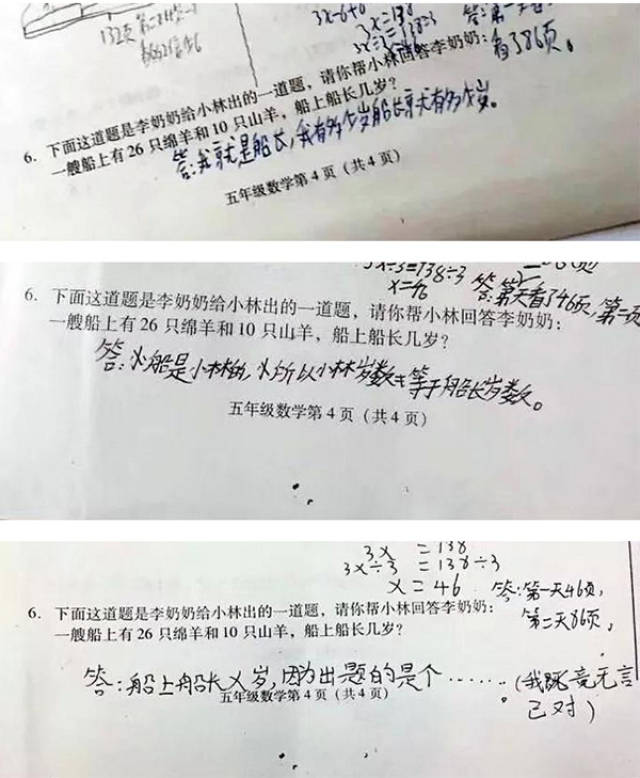 132页
3x-6+6
3x=138
3x÷3=138÷3
看了86页。
6. 下面这道题是李奶奶给小林出的一道题，请你帮小林回答李奶奶：
一艘船上有26只绵羊和10只山羊，船上船长几岁？
答：我就是船长，我有多少岁船长就有多少岁。
五年级数学第4页（共4页）
3x÷3=138÷3
x=46
答：第一天看了46页，第一页
6. 下面这道题是李奶奶给小林出的一道题，请你帮小林回答李奶奶：
一艘船上有26只绵羊和10只山羊，船上船长几岁？
答：小船是小林的，所以小林岁数等于船长岁数。
五年级数学第4页（共4页）
3x =138
3x÷3 =138÷3
x=46
答：第一天46页，
第二天86页，
6. 下面这道题是李奶奶给小林出的一道题，请你帮小林回答李奶奶：
一艘船上有26只绵羊和10只山羊，船上船长几岁？
答：船上船长X岁，因为出题的是个……（我竟无言
已对）
五年级数学第4页（共4页）